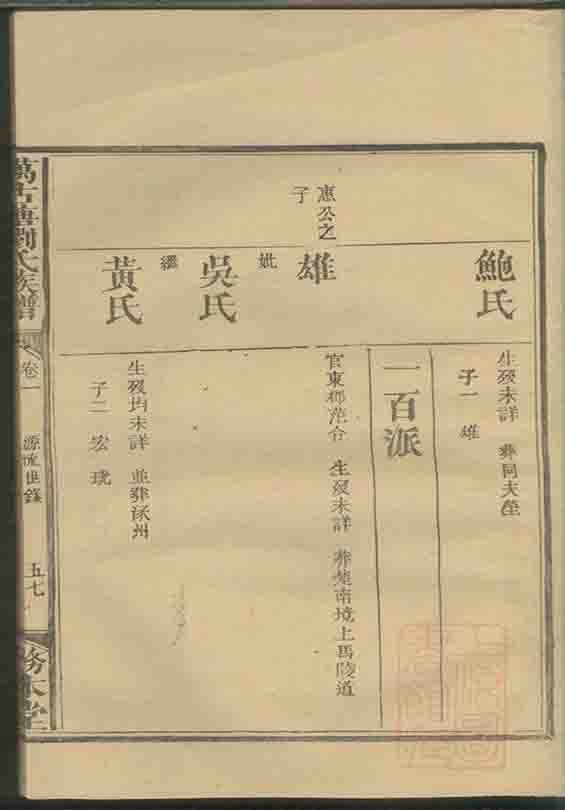 鮑氏
生歿未詳 葬同夫塋
子一 雄
一百派
惠公之
子
雄
官東鄉范令 生歿未詳 葬楚南境上馬陵道
妣
吳氏
繼
黃氏
生歿均未詳 並葬涿州
子二 宏 珖
萬古塘劉氏族譜
卷一
源流世錄
五七
務本堂